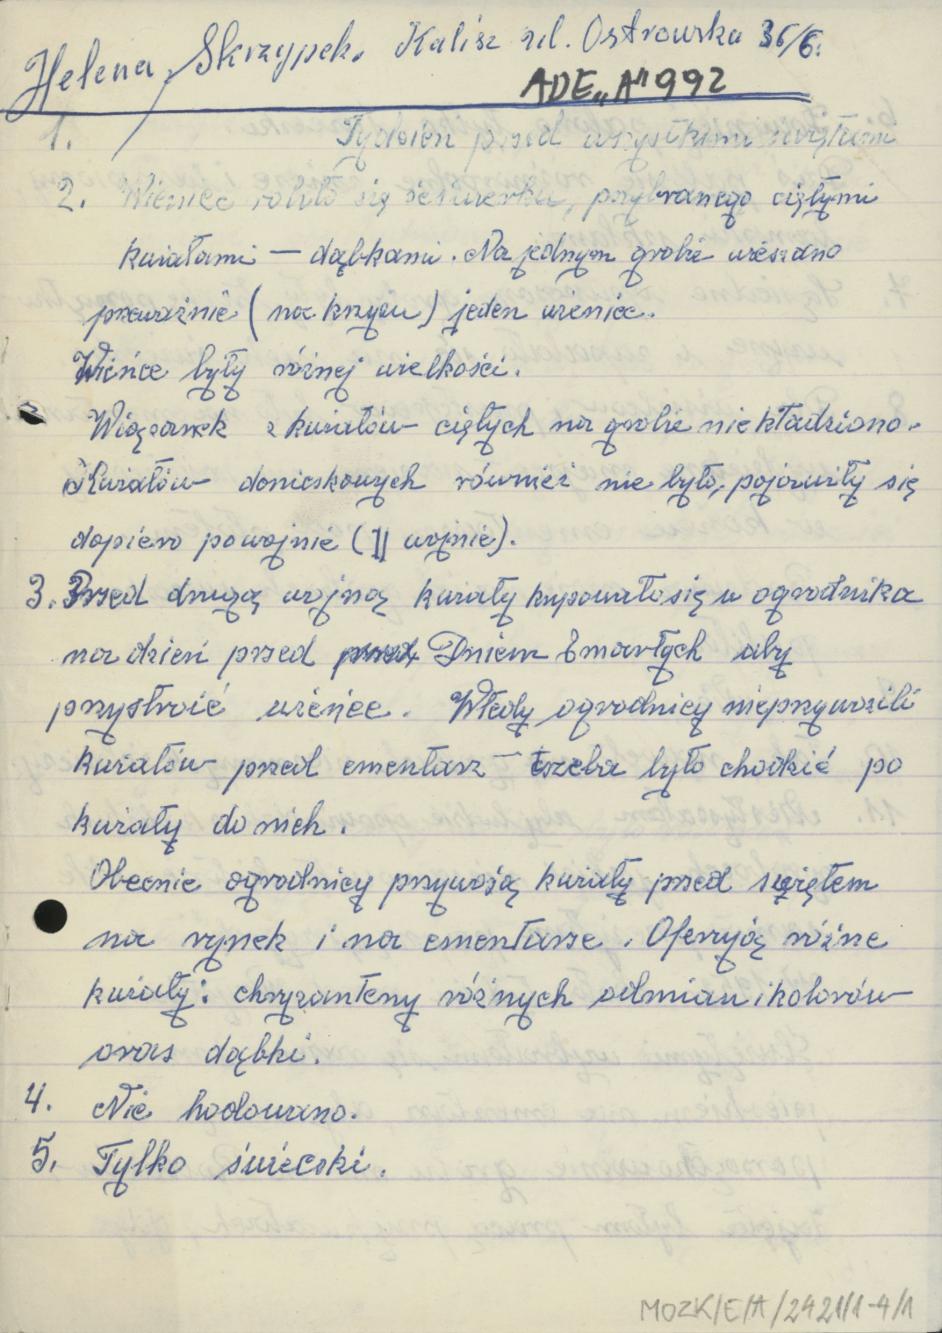 Helena Skrzypek, Kalisz ul. Ostrowska 36/6.
ADE „A" 992
1. Tydzień przed wszystkimi świętemi
2. Wieniec robiło się ze świerku, przybranego ciętymi
kwiatami — dąbkami. Na jednym grobie wieszano
przeważnie (na krzyżu) jeden wieniec.
Wieńce były różnej wielkości.
Wiązanek z kwiatów ciętych na grobie nie kładziono.
Kwiatów doniczkowych również nie było, pojawiły się
dopiero po wojnie (II wojnie).
3. Przed drugą wojną kwiaty kupowało się u ogrodnika
na dzień przed przed Dniem Zmarłych aby
przystroić wieńce. Wtedy ogrodnicy nieprzywozili
kwiatów przed cmentarz — trzeba było chodzić po
kwiaty do nich.
Obecnie ogrodnicy przywożą kwiaty przed świętem
na rynek i na cmentarze. Oferują różne
kwiaty: chryzantemy różnych odmian i kolorów
oraz dąbki.
4. Nie hodowano.
5. Tylko świeczki.
MOZK/E/A/2421/1-4/1